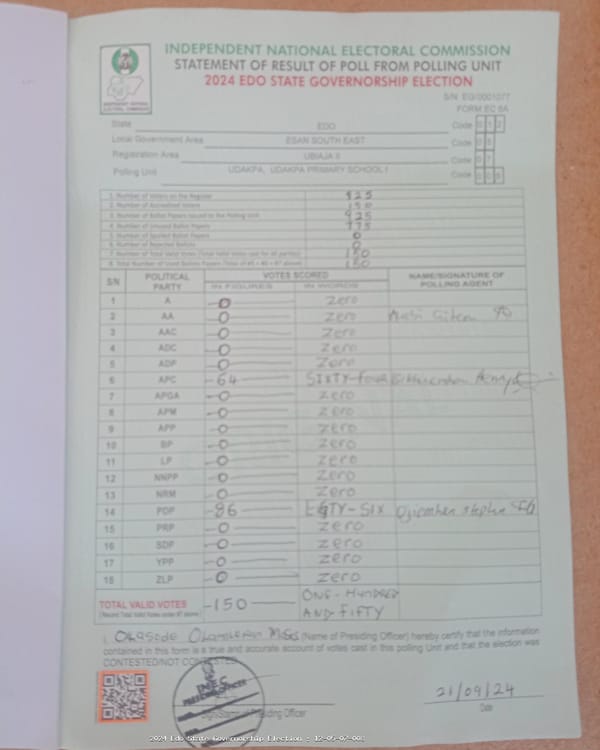 INDEPENDENT NATIONAL ELECTORAL COMMISSION
STATEMENT OF RESULT OF POLL FROM POLLING UNIT
2024 EDO STATE GOVERNORSHIP ELECTION
INDEPENDENT NATIONAL ELECTORAL COMMISSION
S/N: EG/0001077
FORM EC 8A
State EDO Code 0 1 2
Local Government Area ESAN SOUTH EAST Code 0 5
Registration Area UBIAJA II Code 0 7
Polling Unit UDAKPA, UDAKPA PRIMARY SCHOOL I Code 0 0 8
1. Number of Voters on the Register 925
2. Number of Accredited Voters 150
3. Number of Ballot Papers Issued to the Polling Unit 925
4. Number of Unused Ballot Papers 775
5. Number of Spoiled Ballot Papers 0
6. Number of Rejected Ballots 0
7. Number of Total Valid Votes (Total Valid Votes cast for all parties) 150
8. Total Number of Used Ballot Papers (Total of #5 + #6 + #7 above) 150
S/N POLITICAL PARTY VOTES SCORED NAME/SIGNATURE OF POLLING AGENT
IN FIGURES IN WORDS
1 A -0- Zero
2 AA -0- Zero
3 AAC -0- Zero
4 ADC -0- Zero
5 ADP -0- Zero
6 APC -64- SIXTY-Four
7 APGA -0- Zero
8 APM -0- Zero
9 APP -0- Zero
10 BP -0- Zero
11 LP -0- Zero
12 NNPP -0- Zero
13 NRM -0- Zero
14 PDP -86- EIGTY-SIX Ojiemhen Stephen
15 PRP -0- Zero
16 SDP -0- Zero
17 YPP -0- Zero
18 ZLP -0- Zero
TOTAL VALID VOTES -150- ONE-HUNDRED
(Record Total Valid Votes under #7 above) AND FIFTY
I, (Name of Presiding Officer) hereby certify that the information
contained in this form is a true and accurate account of votes cast in this polling Unit and that the election was
CONTESTED/NOT CONTESTED
INEC
PRESIDING OFFICER
Sign/Stamp of Presiding Officer
21/09/24
Date
2024 Edo State Governorship Election - 12-05-07-008